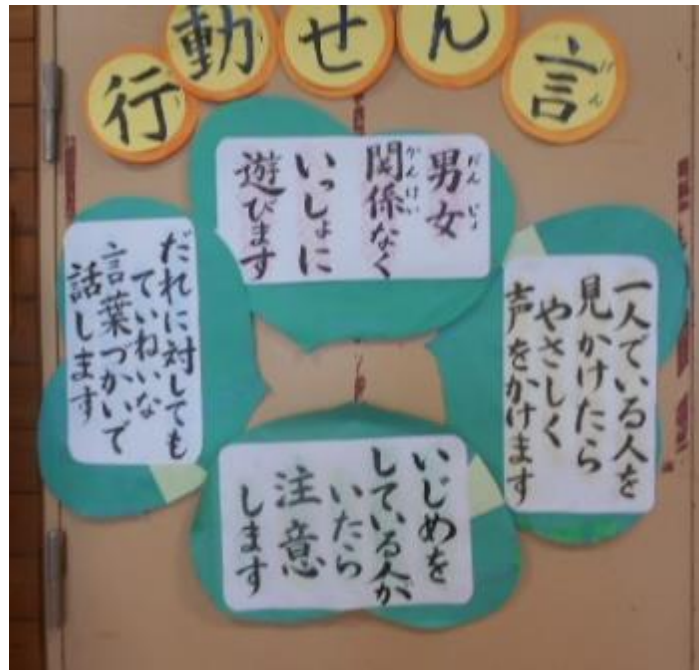 行動せん言
男女
関係なく
いっしょに
遊びます
一人でいる人を
見かけたら
やさしく
声をかけます
だれに対しても
ていねいな
言葉つかいで
話します
いじめを
している人が
いたら
注意
します